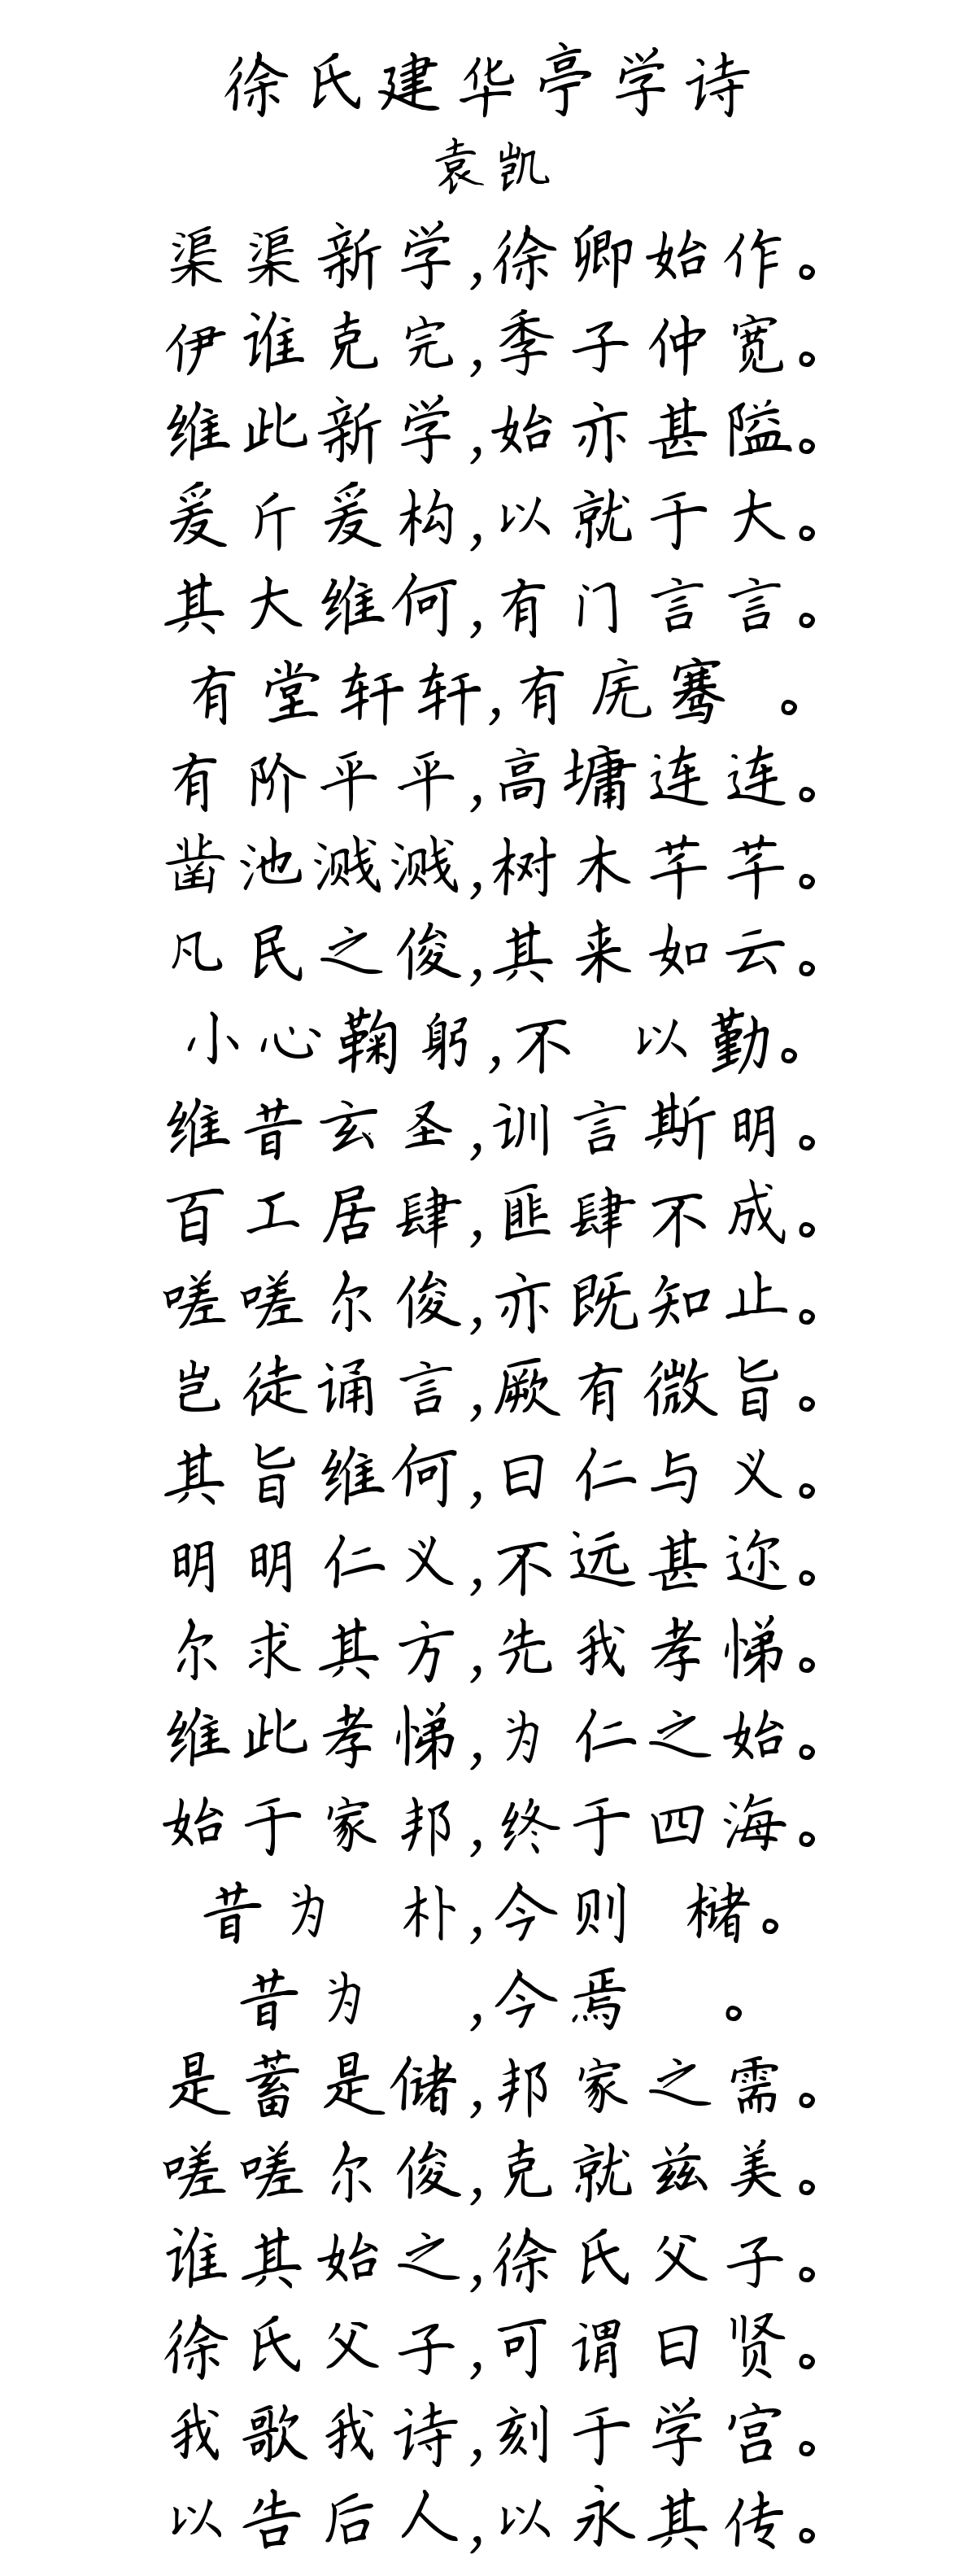 徐氏建华亭学诗
袁凯
渠渠新学,徐卿始作。
伊谁克完,季子仲宽。
维此新学,始亦甚隘。
爰斤爰构,以就于大。
其大维何,有门言言。
有堂轩轩,有庑骞 。
有阶平平,高墉连连。
凿池溅溅,树木芊芊。
凡民之俊,其来如云。
小心鞠躬,不 以勤。
维昔玄圣,训言斯明。
百工居肆,匪肆不成。
嗟嗟尔俊,亦既知止。
岂徒诵言,厥有微旨。
其旨维何,曰仁与义。
明明仁义,不远甚迩。
尔求其方,先我孝悌。
维此孝悌,为仁之始。
始于家邦,终于四海。
昔为 朴,今则 槠。
昔为 ,今焉 。
是蓄是储,邦家之需。
嗟嗟尔俊,克就兹美。
谁其始之,徐氏父子。
徐氏父子,可谓曰贤。
我歌我诗,刻于学宫。
以告后人,以永其传。